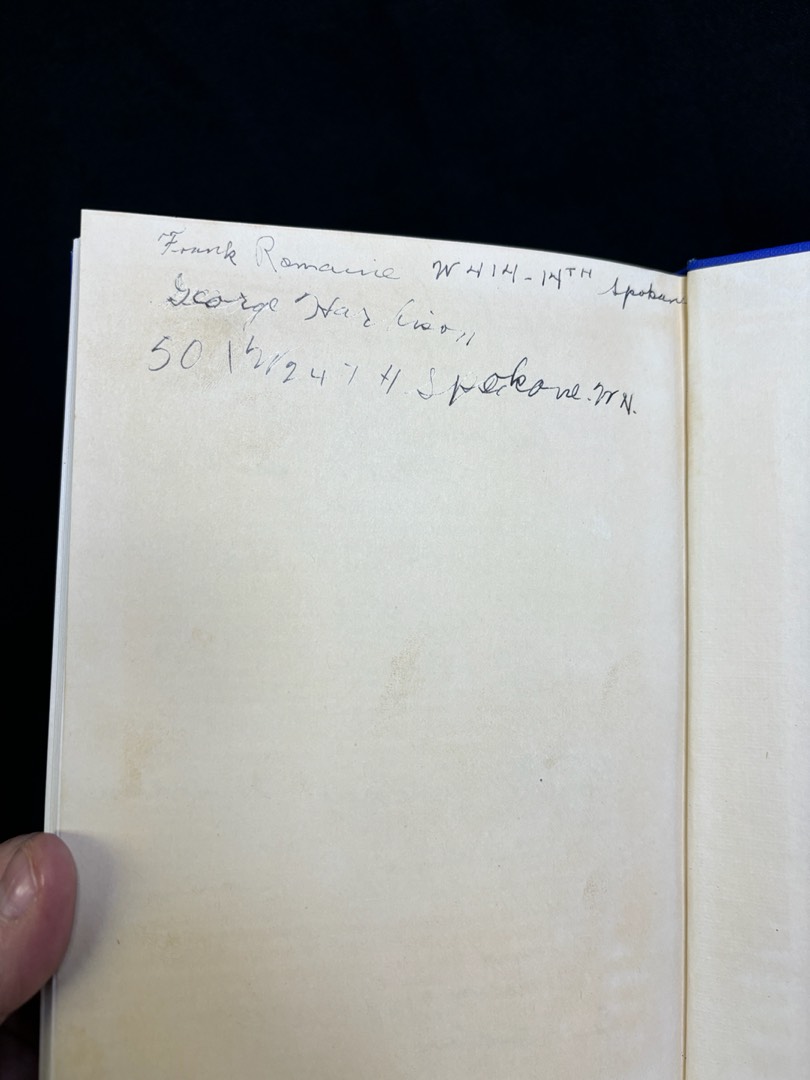 Frank Romaine W 414-14TH Spokane
George Harrison
501 W 24TH Spokane. WN.